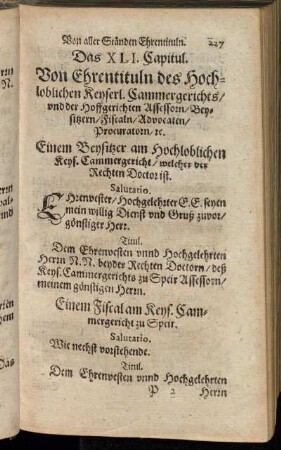 Von aller Ständen Ehrentituln. 227
Das XLI. Capitul.
Von Ehrentituln des Hoch-
loblichen Keyserl. Cammergerichts/
vnd der Hoffgerichten Assessorn/Bey-
sitzern/Fiscaln/Advocaten/
Procuratorn/ec.
Einem Beysitzer am Hochloblichen
Keys. Cammergericht/welcher der
Rechten Doctor ist.
Salutatio.
EHrenvester/Hochgelehrter E.E. seyen
mein willig Dienst vnd Gruß zuvor-
günstiger Herr.
Titul.
Dem Ehrenvesten vnnd Hochgelehrten
Herrn N.N. beyder Rechten Doctorn/deß
Keys. Cammergerichts zu Speir Assessorn/
meinem günstigen Herrn.
Einem Fiscal am Keys. Cam-
mergericht zu Speir.
Salutatio.
Wie nechst vorstehendt.
Titul.
Dem Ehrenvesten vnnd Hochgelehrten
P 2 Herrn